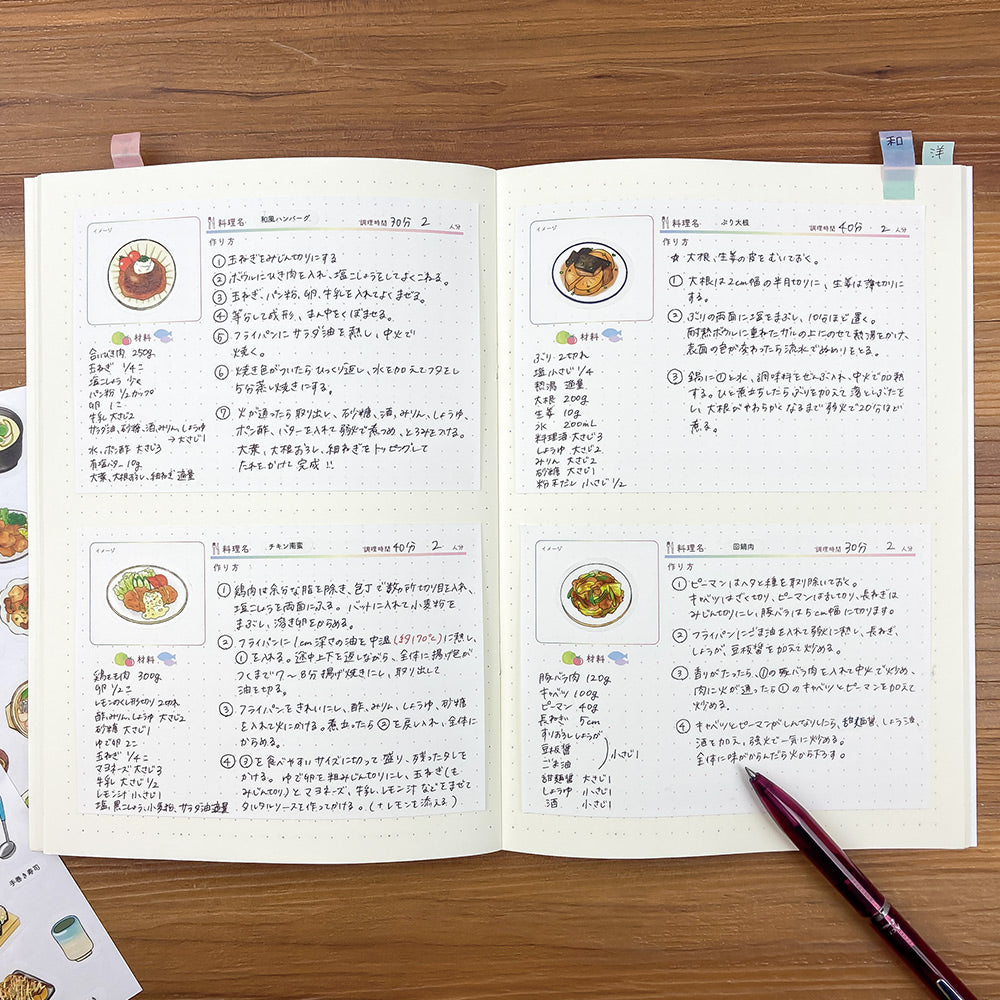 和
洋
イメージ
料理名 和風ハンバーグ 調理時間 30分 2 人分
作り方
① 玉ねぎをみじん切りにする
② ボウルにひき肉を入れ、塩こしょうをしてよくこねる。
③ 玉ねぎ、パン粉、卵、牛乳を入れてよくまぜる。
④ 等分して成形、まん中をくぼませる。
⑤ フライパンにサラダ油を熱し、中火で
焼く。
⑥ 焼き色がついたらひっくり返し、水を加えてフタをし
5分蒸し焼きにする。
⑦ 火が通ったら取り出し、砂糖、酒、みりん、しょうゆ、
ポン酢、バターを入れて弱火で煮つめ、とろみをつける。
大葉、大根おろし、細ねぎをトッピングして
たれをかけて完成!!
材料
合いびき肉 250g
玉ねぎ 1/4コ
塩こしょう 少々
パン粉 1/2カップ
卵 1コ
牛乳 大さじ2
サラダ油、砂糖、酒、みりん、しょうゆ
→大さじ1
水、ポン酢 大さじ3
有塩バター 10g
大葉、大根おろし、細ねぎ 適量
イメージ
料理名 チキン南蛮 調理時間 40分 2 人分
作り方
① 鶏肉は余分な脂を除き、包丁で数ヶ所切り目を入れ、
塩こしょうを両面にふる。バットに入れて小麦粉を
まぶし、溶き卵をからめる。
② フライパンに1cm深さの油を中温(約170℃)に熱し、
①を入れる。途中上下を返しながら、全体に揚げ色が
つくまで7〜8分揚げ焼きにし、取り出して
油をきる。
③ フライパンをきれいにし、酢、みりん、しょうゆ、砂糖
を入れて火にかける。煮立ったら②を戻し入れ、全体に
からめる。
④ ③を食べやすいサイズに切って盛り、残ったタレを
かける。ゆで卵を粗みじん切りにし、玉ねぎ(も
みじん切り)とマヨネーズ、牛乳、レモン汁などをまぜて
タルタルソースを作ってかける。(+レモンを添える)
材料
鶏もも肉 300g
卵 1/2コ
レモンのくし形切り 2切れ
酢、みりん、しょうゆ 大さじ2
砂糖 大さじ1
ゆで卵 2コ
玉ねぎ 1/4コ
マヨネーズ 大さじ3
牛乳 大さじ1/2
レモン汁 小さじ1
塩、黒こしょう、小麦粉、サラダ油 適量
イメージ
料理名 ぶり大根 調理時間 40分 2 人分
作り方
☆ 大根、生姜の皮をむいておく。
① 大根は2cm幅の半月切りに、生姜は薄切りに
する。
② ぶりの両面に塩をまぶし、10分ほど置く。
耐熱ボウルに重ねたザルの上にのせて熱湯をかけ、
表面の色が変わったら流水でぬめりをとる。
③ 鍋に①と水、調味料をぜんぶ入れ、中火で加熱
する。ひと煮立ちしたらぶりを加えて落としぶたをと
い、大根がやわらかくなるまで弱火で20分ほど
煮る。
材料
ぶり 2切れ
塩 小さじ1/4
熱湯 適量
大根 200g
生姜 10g
水 200mL
料理酒 大さじ3
しょうゆ 大さじ2
みりん 大さじ2
砂糖 大さじ1
粉末だし 小さじ1/2
イメージ
料理名 回鍋肉 調理時間 30分 2 人分
作り方
① ピーマンはヘタと種を取り除いておく。
キャベツはざく切り、ピーマンは乱切り、長ねぎは
みじん切りにし、豚バラは5cm幅に切ります。
② フライパンにごま油を入れて弱火に熱し、長ねぎ、
しょうが、豆板醤を加えて炒める。
③ 香りがたったら、①の豚バラ肉を入れて中火で炒め、
肉に火が通ったら①のキャベツとピーマンを加えて
炒める。
④ キャベツとピーマンがしんなりしたら、甜麺醤、しょう油、
酒を加え、強火で一気に炒める。
全体に味がからんだら火から下ろす。
材料
豚バラ肉 120g
キャベツ 100g
ピーマン 40g
長ねぎ 5cm
すりおろししょうが
豆板醤
ごま油
小さじ1
甜麺醤 大さじ1
しょうゆ 小さじ1
酒 小さじ1
手巻き寿司